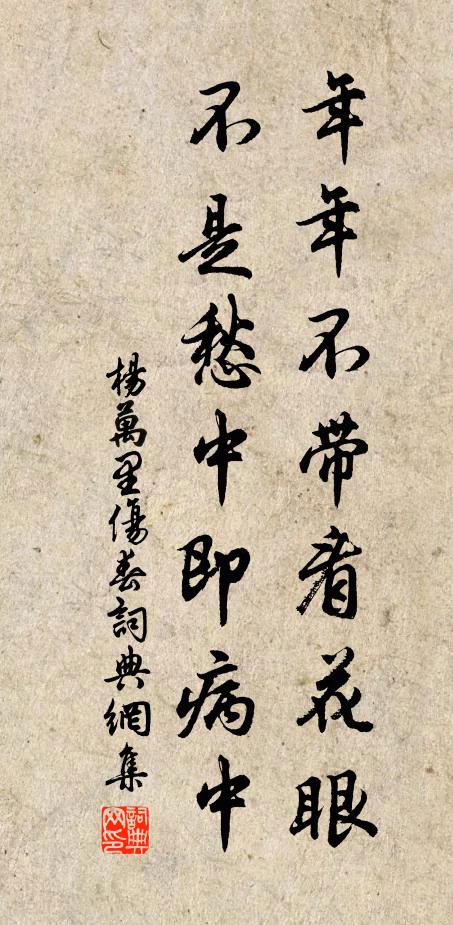 年年不带看花眼
不是愁中即病中
楊萬里傷春詞典網集
詞典網印